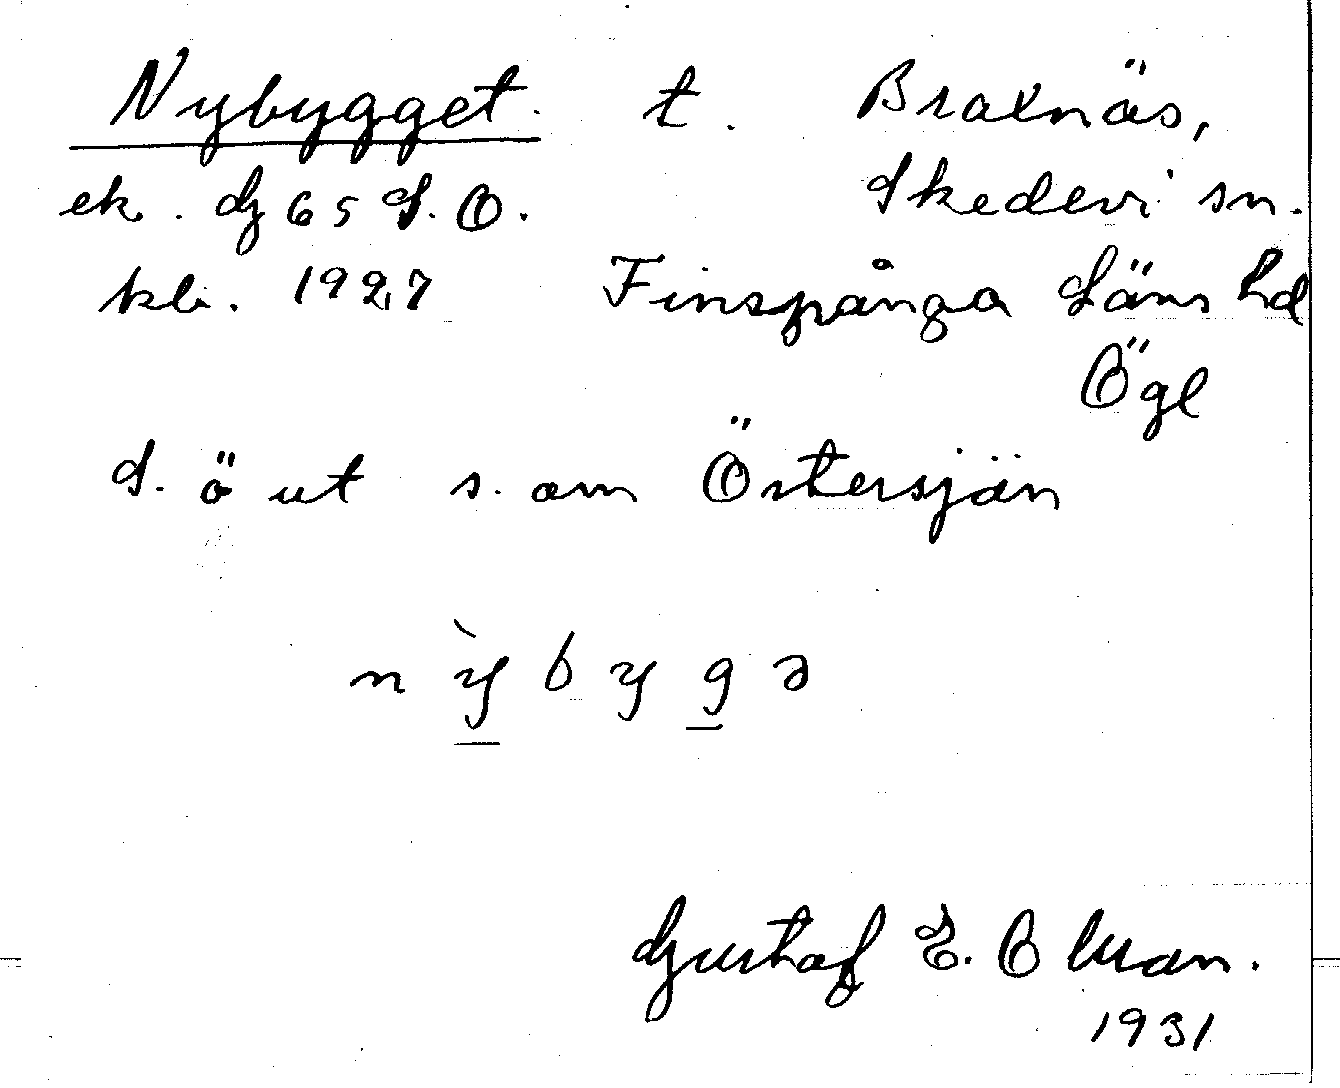 Nybygget t. Braxnäs,
ek. G 65 S.O. Skedevi sn.
kb. 1927 Finspånga Läns hd
Ögl
S. ö ut s. om Östersjön
n ỳ b y g ə
Gustaf E. O lman.
1931